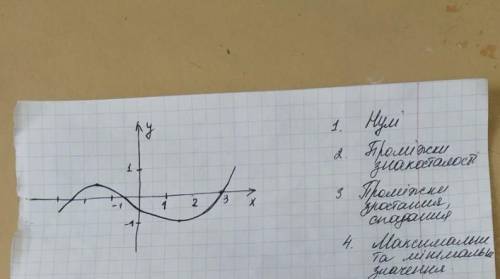 y
1
-1 1 2 3 x
-1
1. Нулі
2 Проміжки
знакосталості
3 Проміжки
зростання,
спадання
4. Максимальні
та мінімальні
значення